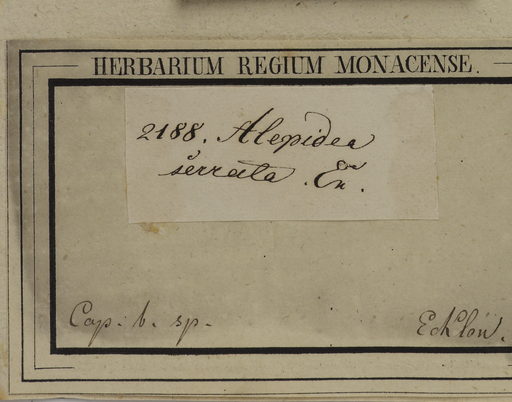 HERBARIUM REGIUM MONACENSE.
2188. Alepidea
serrata. En.
Cap. b. sp.
Ecklon.